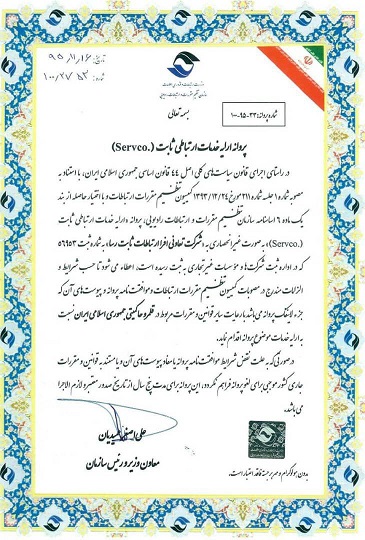 ۹۵/۱۱/۱۶
۱۰۰/۲۷۰۵۳
شماره پروانه: ۳۳-۹۵-۱۰۰
بسمه تعالی
پروانه ارایه خدمات ارتباطی ثابت (Servco.)
در راستای اجرای قانون سیاست‌های کلی اصل ۴۴ قانون اساسی جمهوری اسلامی ایران، با استناد به
مصوبه شماره ۱ جلسه شماره ۲۱۱ مورخ ۱۳۹۳/۱۲/۲۴ کمیسیون تنظیم مقررات ارتباطات و با اختیار حاصله از بند
یک ماده ۶ اساسنامه سازمان تنظیم مقررات و ارتباطات رادیویی، پروانه «ارایه خدمات ارتباطی ثابت
(Servco.)» به صورت غیر انحصاری به «شرکت تعاونی افزار ارتباطات ثابت رسا» به شماره ثبت ۵۶۹۵۳
که در اداره ثبت شرکت‌ها و مؤسسات غیر تجاری به ثبت رسیده است، اعطاء می‌شود تا حسب شرایط و
الزامات مندرج در مصوبات کمیسیون تنظیم مقررات ارتباطات و موافقت‌نامه پروانه و پیوست‌های آن که
جزء لاینفک پروانه می‌باشد با رعایت سایر قوانین و مقررات مربوط در قلمرو حاکمیتی جمهوری اسلامی ایران نسبت
به ارایه خدمات موضوع پروانه اقدام نماید.
در صورتی که به علت نقض شرایط موافقت‌نامه پروانه یا مفاد پیوست‌های آن و یا مستند به قوانین و مقررات
جاری کشور موجبی برای لغو پروانه فراهم نگردد، این پروانه برای مدت پنج سال از تاریخ صدور معتبر و لازم الاجرا
می باشد.
علی اصغر عمیدیان
معاون وزیر و رئیس سازمان
بدون هولوگرام و مهر برجسته فاقد اعتبار است.